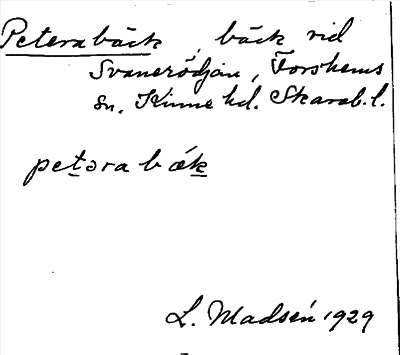 Peterabäck, bäck vid
Svanerödjan, Forshems
sn. Kinne hd. Skarab. l.
petəra bæk
L. Madsén 1929